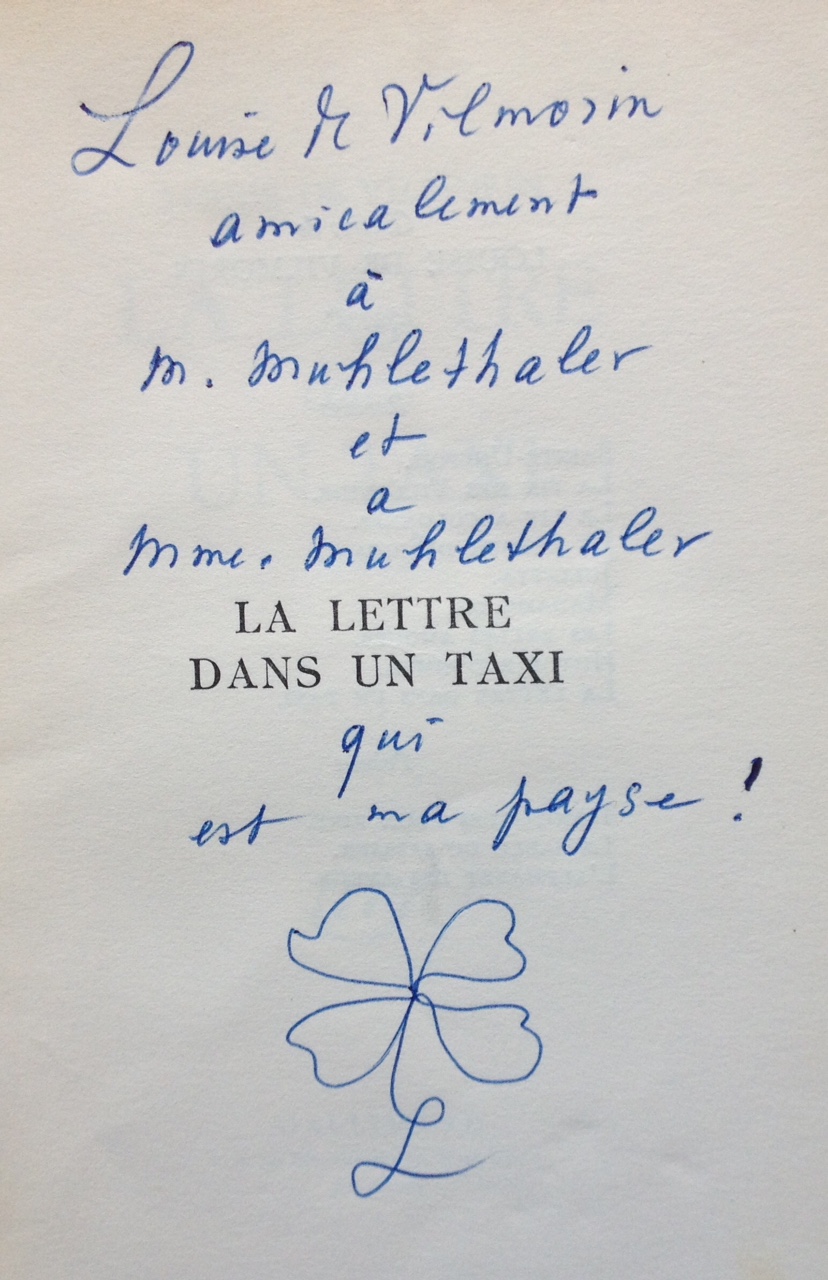 Louise de Vilmorin
amicalement
à
M. Muhlethaler
et
a
Mme. Muhlethaler
LA LETTRE
DANS UN TAXI
qui
est ma payse !
L